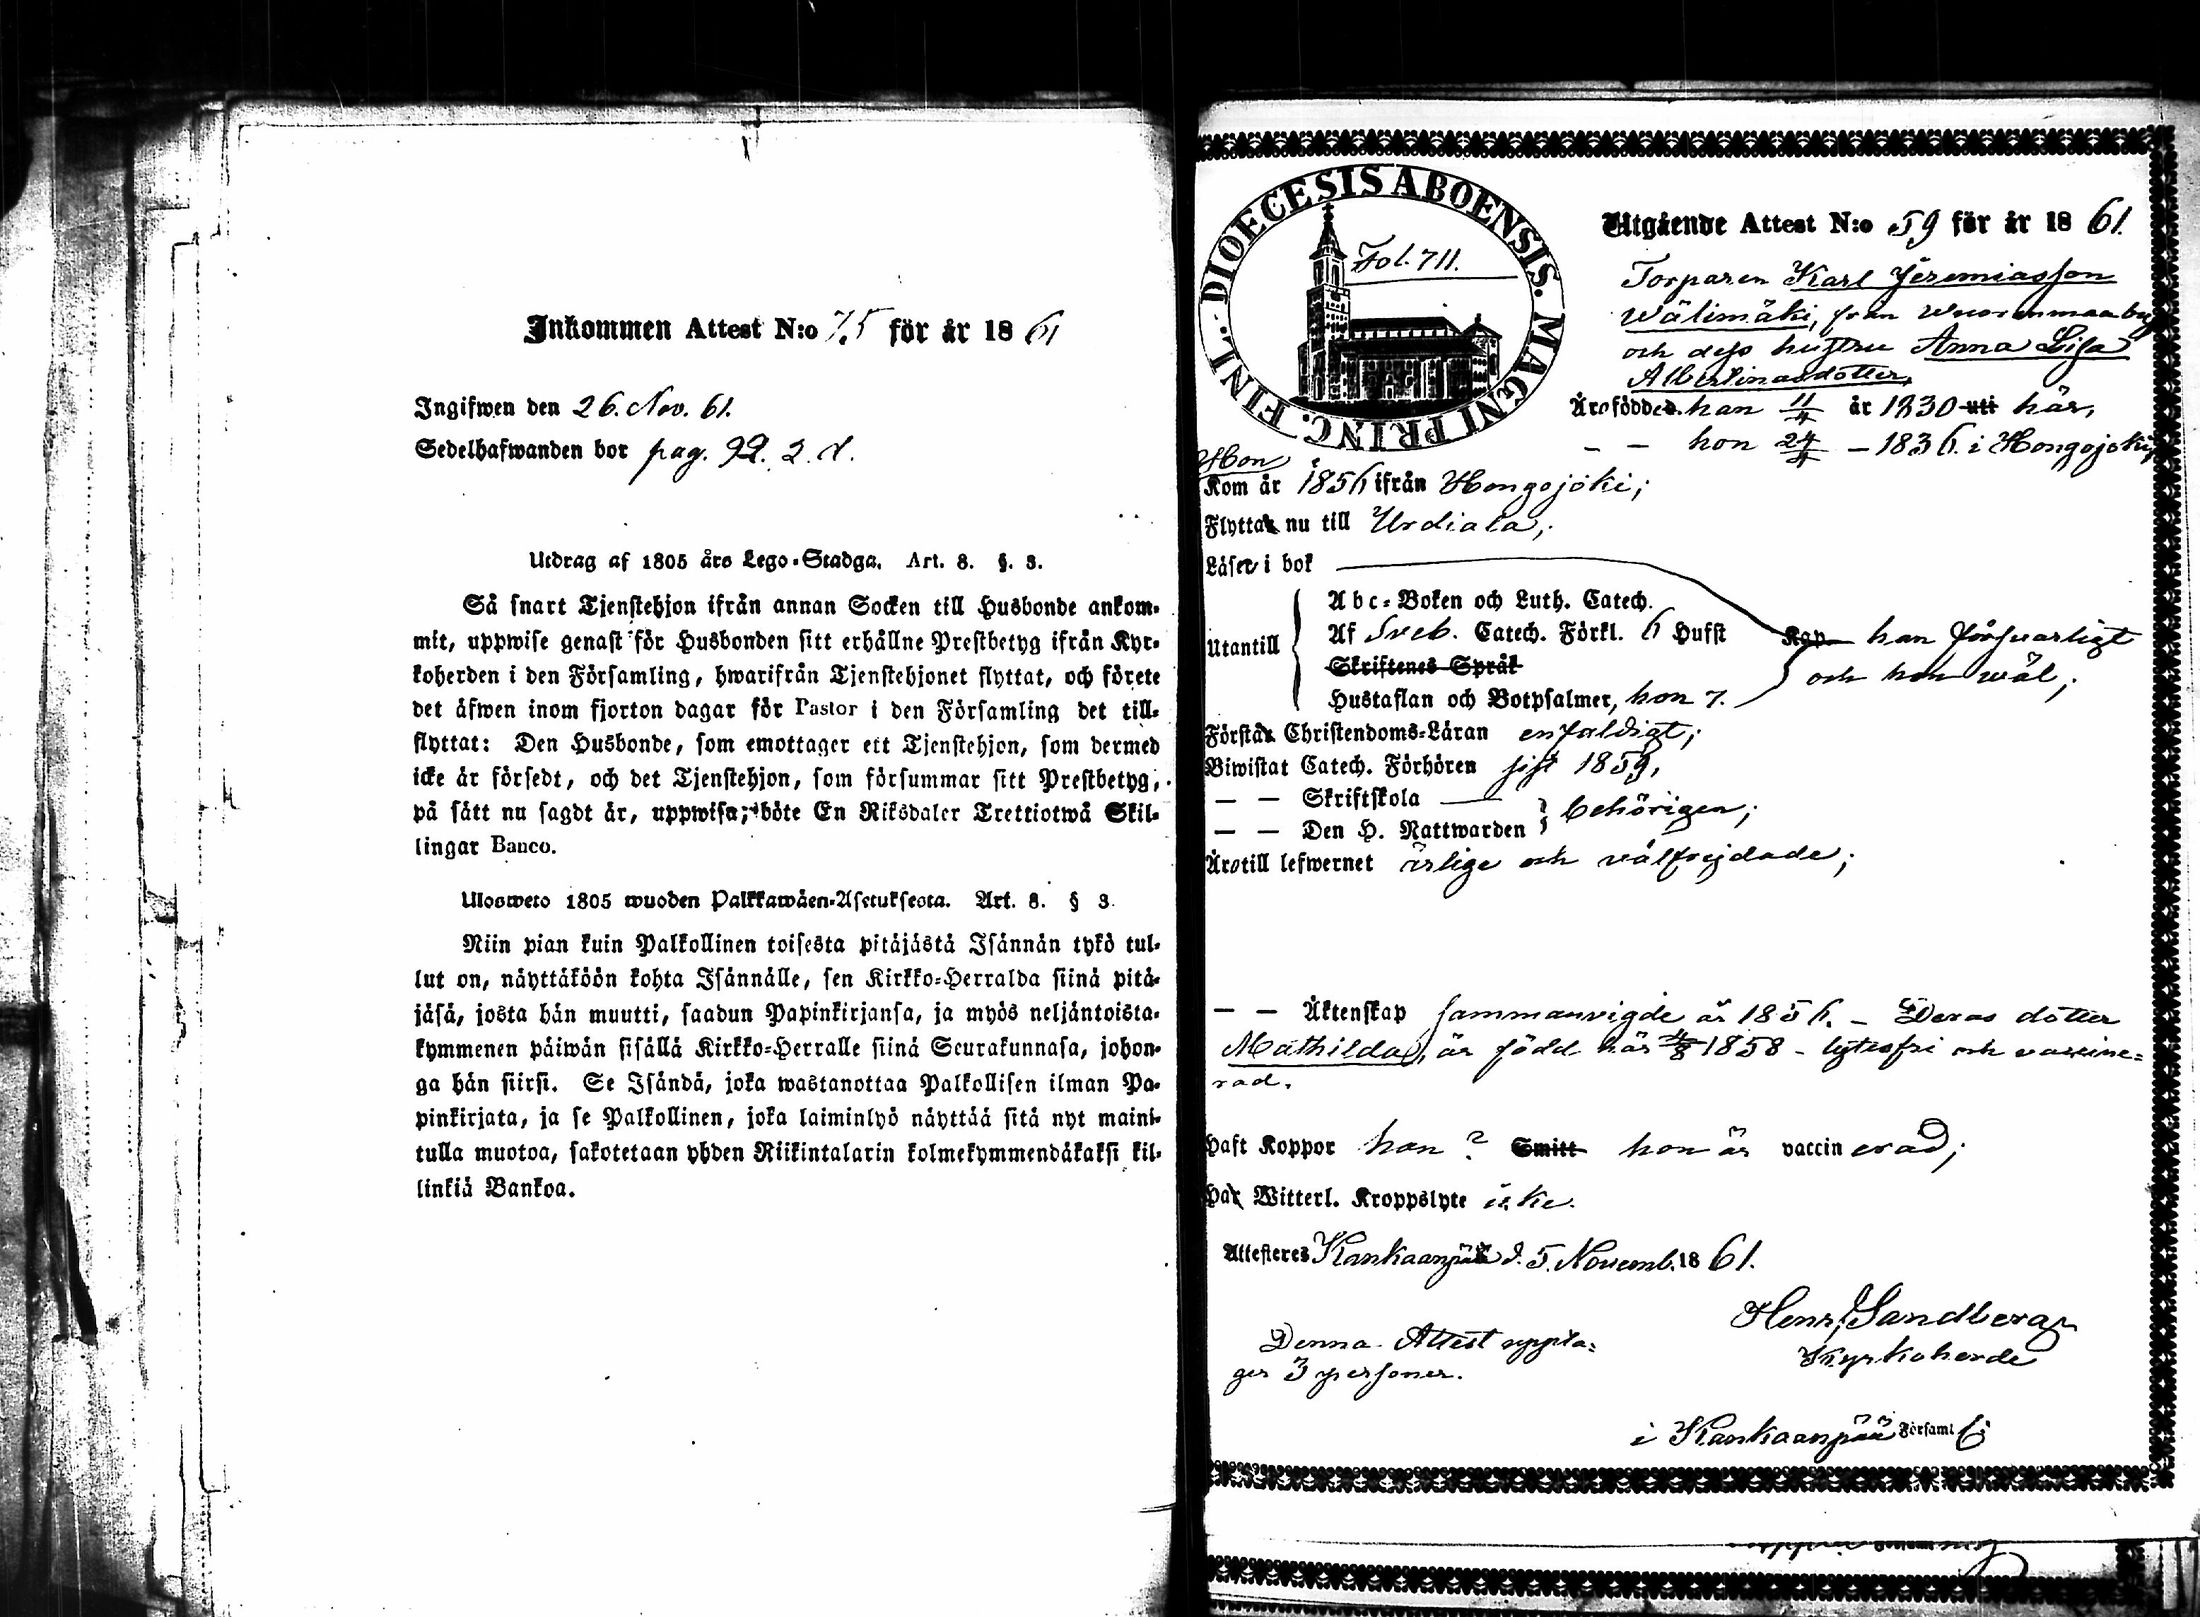 Inkommen Attest N:o 75 för år 1861
Ingifwen den 26. Nov. 61.
Sedelhafwanden bor pag. 92. 2. d.
Utdrag af 1805 års Lego-Stadga. Art. 8. §. 3.
Så snart Tjenstehjon ifrån annan Socken till Husbonde ankom-
mit, uppwise genast för Husbonden sitt erhållne Prestbetyg ifrån Kyr-
koherden i den Församling, hwarifrån Tjenstehjonet flyttat, och förete
det äfwen inom fjorton dagar för Pastor i den Församling det till-
flyttat: Den Husbonde, som emottager ett Tjenstehjon, som dermed
icke är försedt, och det Tjenstehjon, som försummar sitt Prestbetyg,
på sätt nu sagdt är, uppwisa; böte En Riksdaler Trettiotwå Skil-
lingar Banco.
Ulosweto 1805 wuoden Palkkawäen-Asetuksesta. Art. 8. § 3.
Niin pian kuin Palkollinen toisesta pitäjästä Isännän tykö tul-
lut on, näyttäköön kohta Isännälle, sen Kirkko-Herralda siinä pitä-
jäsä, josta hän muutti, saadun Papinkirjansa, ja myös neljäntoista-
kymmenen päiwän sisällä Kirkko-Herralle siinä Seurakunnasa, johon-
ga hän siirsi. Se Isändä, joka wastanottaa Palkollisen ilman Pa-
pinkirjata, ja se Palkollinen, joka laiminlyö näyttää sitä nyt maini-
tulla muotoa, sakotetaan yhden Riikintalarin kolmekymmendäkaksi kil-
linkiä Bankoa.
DIOECESIS ABOENSIS. MAGNI PRINC. FINL.
Fol. 711.
Utgående Attest N:o 59 för år 1861.
Torparen Karl Jeremiasson
Wälimäki, från Wuorenmaa by
och dess hustru Anna Lisa
Albertinasdotter,
Äro födde han 11/4 år 1830 uti här,
— — hon 24/4 — 1836. i Hongojoki;
Hon
Kom år 1856 ifrån Hongojoki;
Flytta nu till Urdiala;
Läser i bok
Utantill
Abc-Boken och Luth. Catech.
Af Sveb. Catech. Förkl. 6 Hufst Kap. han försvarligt
Skriftenes Språk och hon wäl;
Hustaflan och Botpsalmer, hon 7.
Förstå Christendoms-Läran enfaldigt;
Biwistat Catech. Förhören sist 1859,
— — Skriftskola —
— — Den H. Nattwarden } behörigen;
Äro till lefwernet ärlige och välfrejdade;
— — Äktenskap sammanvigde år 1856. — Deras dotter
Mathilda, är född här 4/8 1858 — lytesfri och vaccine-
rad.
Haft Koppor han? Smitt hon är vaccinerad;
Har Witterl. Kroppslyte icke.
Attesteres Kankaanpää d. 5. Novemb. 1861.
Henr. Sandberg
Kyrkoherde
Denna Attest uppta-
ger 3 personer.
i Kankaanpää Församl